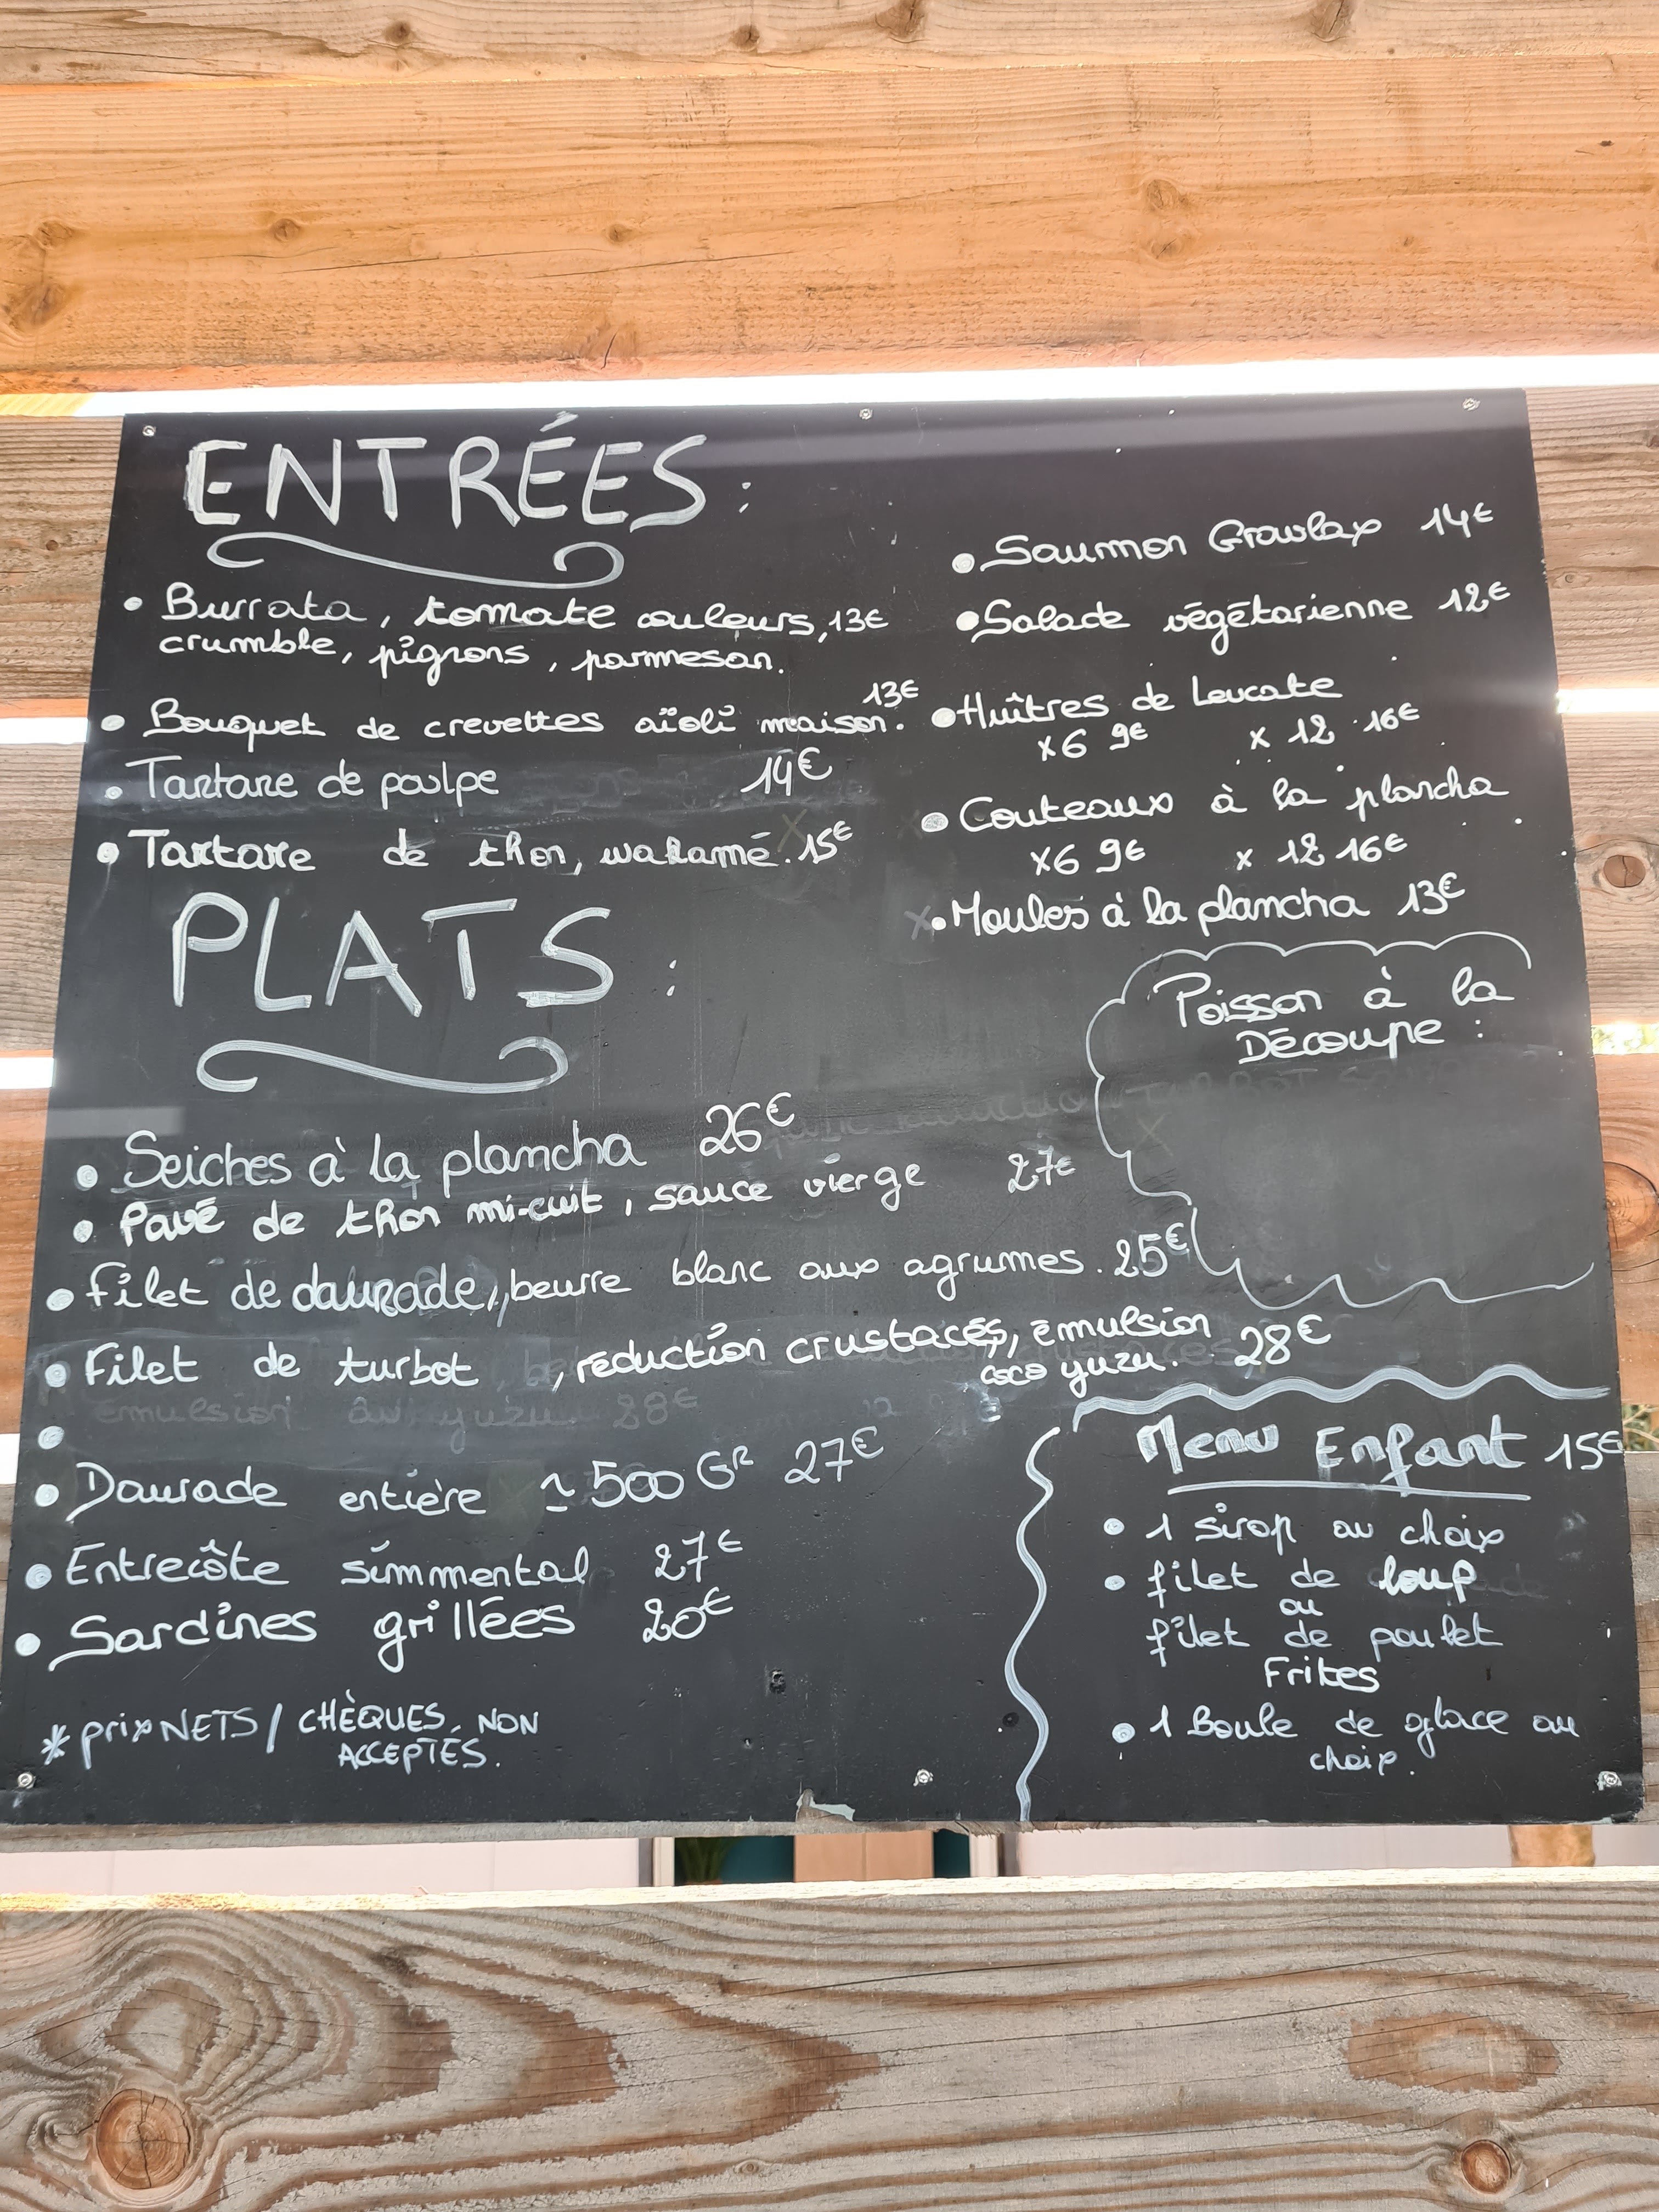 ENTRÉES :
• Burrata, tomate couleurs, 13€
crumble, pignons, parmesan.
• Bouquet de crevettes aïoli maison. 13€
• Tartare de poulpe 14€
• Tartare de thon, wakamé. 15€
• Saumon Gravlax 14€
• Salade végétarienne 12€
• Huîtres de Leucate
x6 9€ x 12 16€
• Couteaux à la plancha
x6 9€ x 12 16€
• Moules à la plancha 13€
Poisson à la
Découpe :
PLATS :
• Seiches à la plancha 26€
• Pavé de thon mi-cuit, sauce vierge 27€
• Filet de daurade, beurre blanc aux agrumes. 25€
• Filet de turbot, réduction crustacés, émulsion
coco yuzu. 28€
émulsion au yuzu 28€
• Daurade entière ≃ 500 GR 27€
• Entrecôte simmental 27€
• Sardines grillées 20€
* prix NETS / CHÈQUES NON
ACCEPTÉS.
Menu Enfant 15€
• 1 sirop au choix
• filet de loup
ou
filet de poulet
Frites
• 1 Boule de glace au
choix.